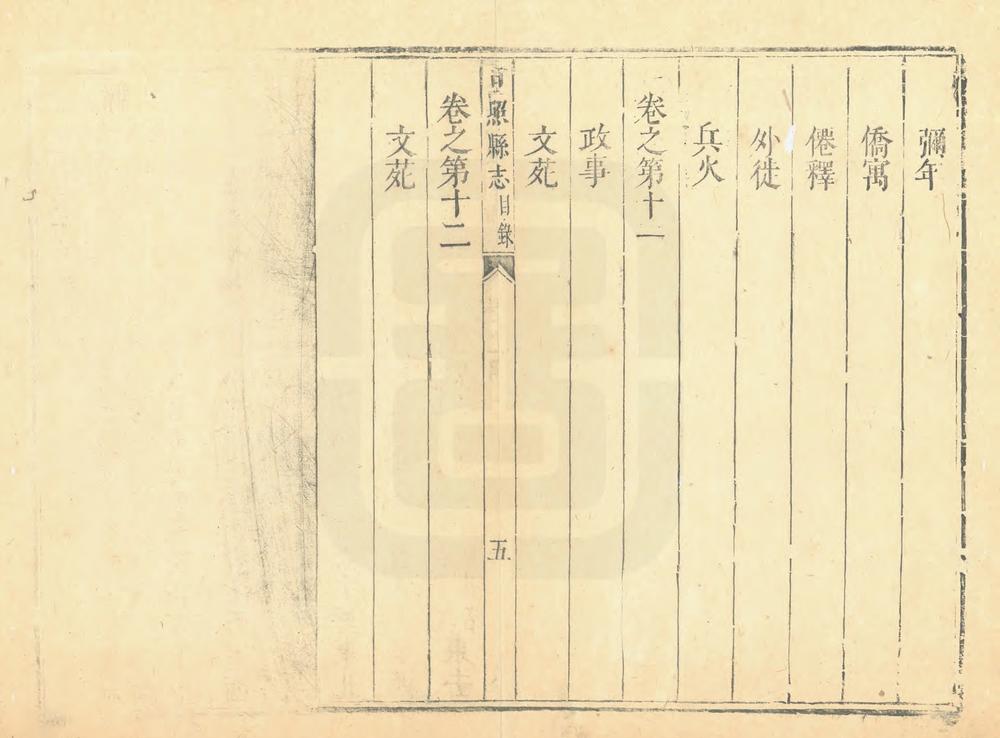 彌年
僑寓
僊釋
外徙
兵火
卷之第十一
政事
文苑
日照縣志 目錄 五
卷之第十二
文苑